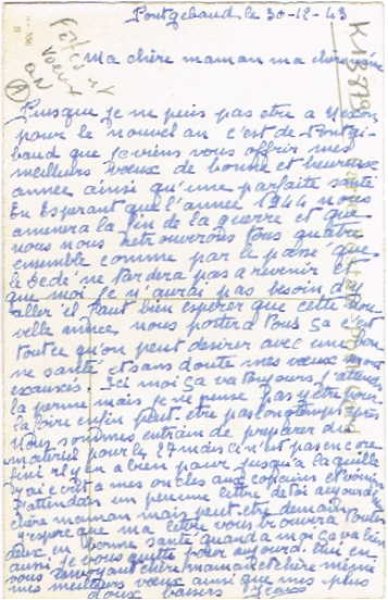 Pontgibaud le 30-12-43
Ma chère maman ma chère mémère
Puisque je ne puis pas etre a
pour le nouvel an c'est de Pontgi-
baud que je viens vous offrir mes
meilleurs voeux de bonne et heureuse
année ainsi qu'une parfaite santé
En Esperant que l'année 1944 nous
amenera la fin de la guerre et que
nous nous retrouverons tous quatre
ensemble comme par le passé que
le Dédé ne tardera pas a revenir et
que moi je n'aurai pas besoin d'y
aller il faut bien esperer que cette nou-
velle année nous portera tous ça c'est
tout ce qu'on peut desirer avec une bon-
ne santé et sans doute mes voeux seront
exaucés. Ici moi ça va toujours j'attends
la perme mais je ne pense pas y etre pour
la foire enfin peut etre pas longtemps après
Nous sommes entrain de preparer du
materiel pour le 27 mais ce n'est pas encore
fini il y en a bien pour jusqu'a la quille
j'ai ecrit a mes oncles aux copains et
J'attendais un peu une lettre de toi aujourd
chère maman mais peut etre demain
J'espere que ma lettre vous trouvera toutes
deux en bonne santé quand a moi ça va très
aussi je vous quitte pour aujourd'hui en
vous renvoyant chère maman et chère mémère
mes meilleurs voeux ainsi que mes plus
doux baisers
K 13-579
voeux
A